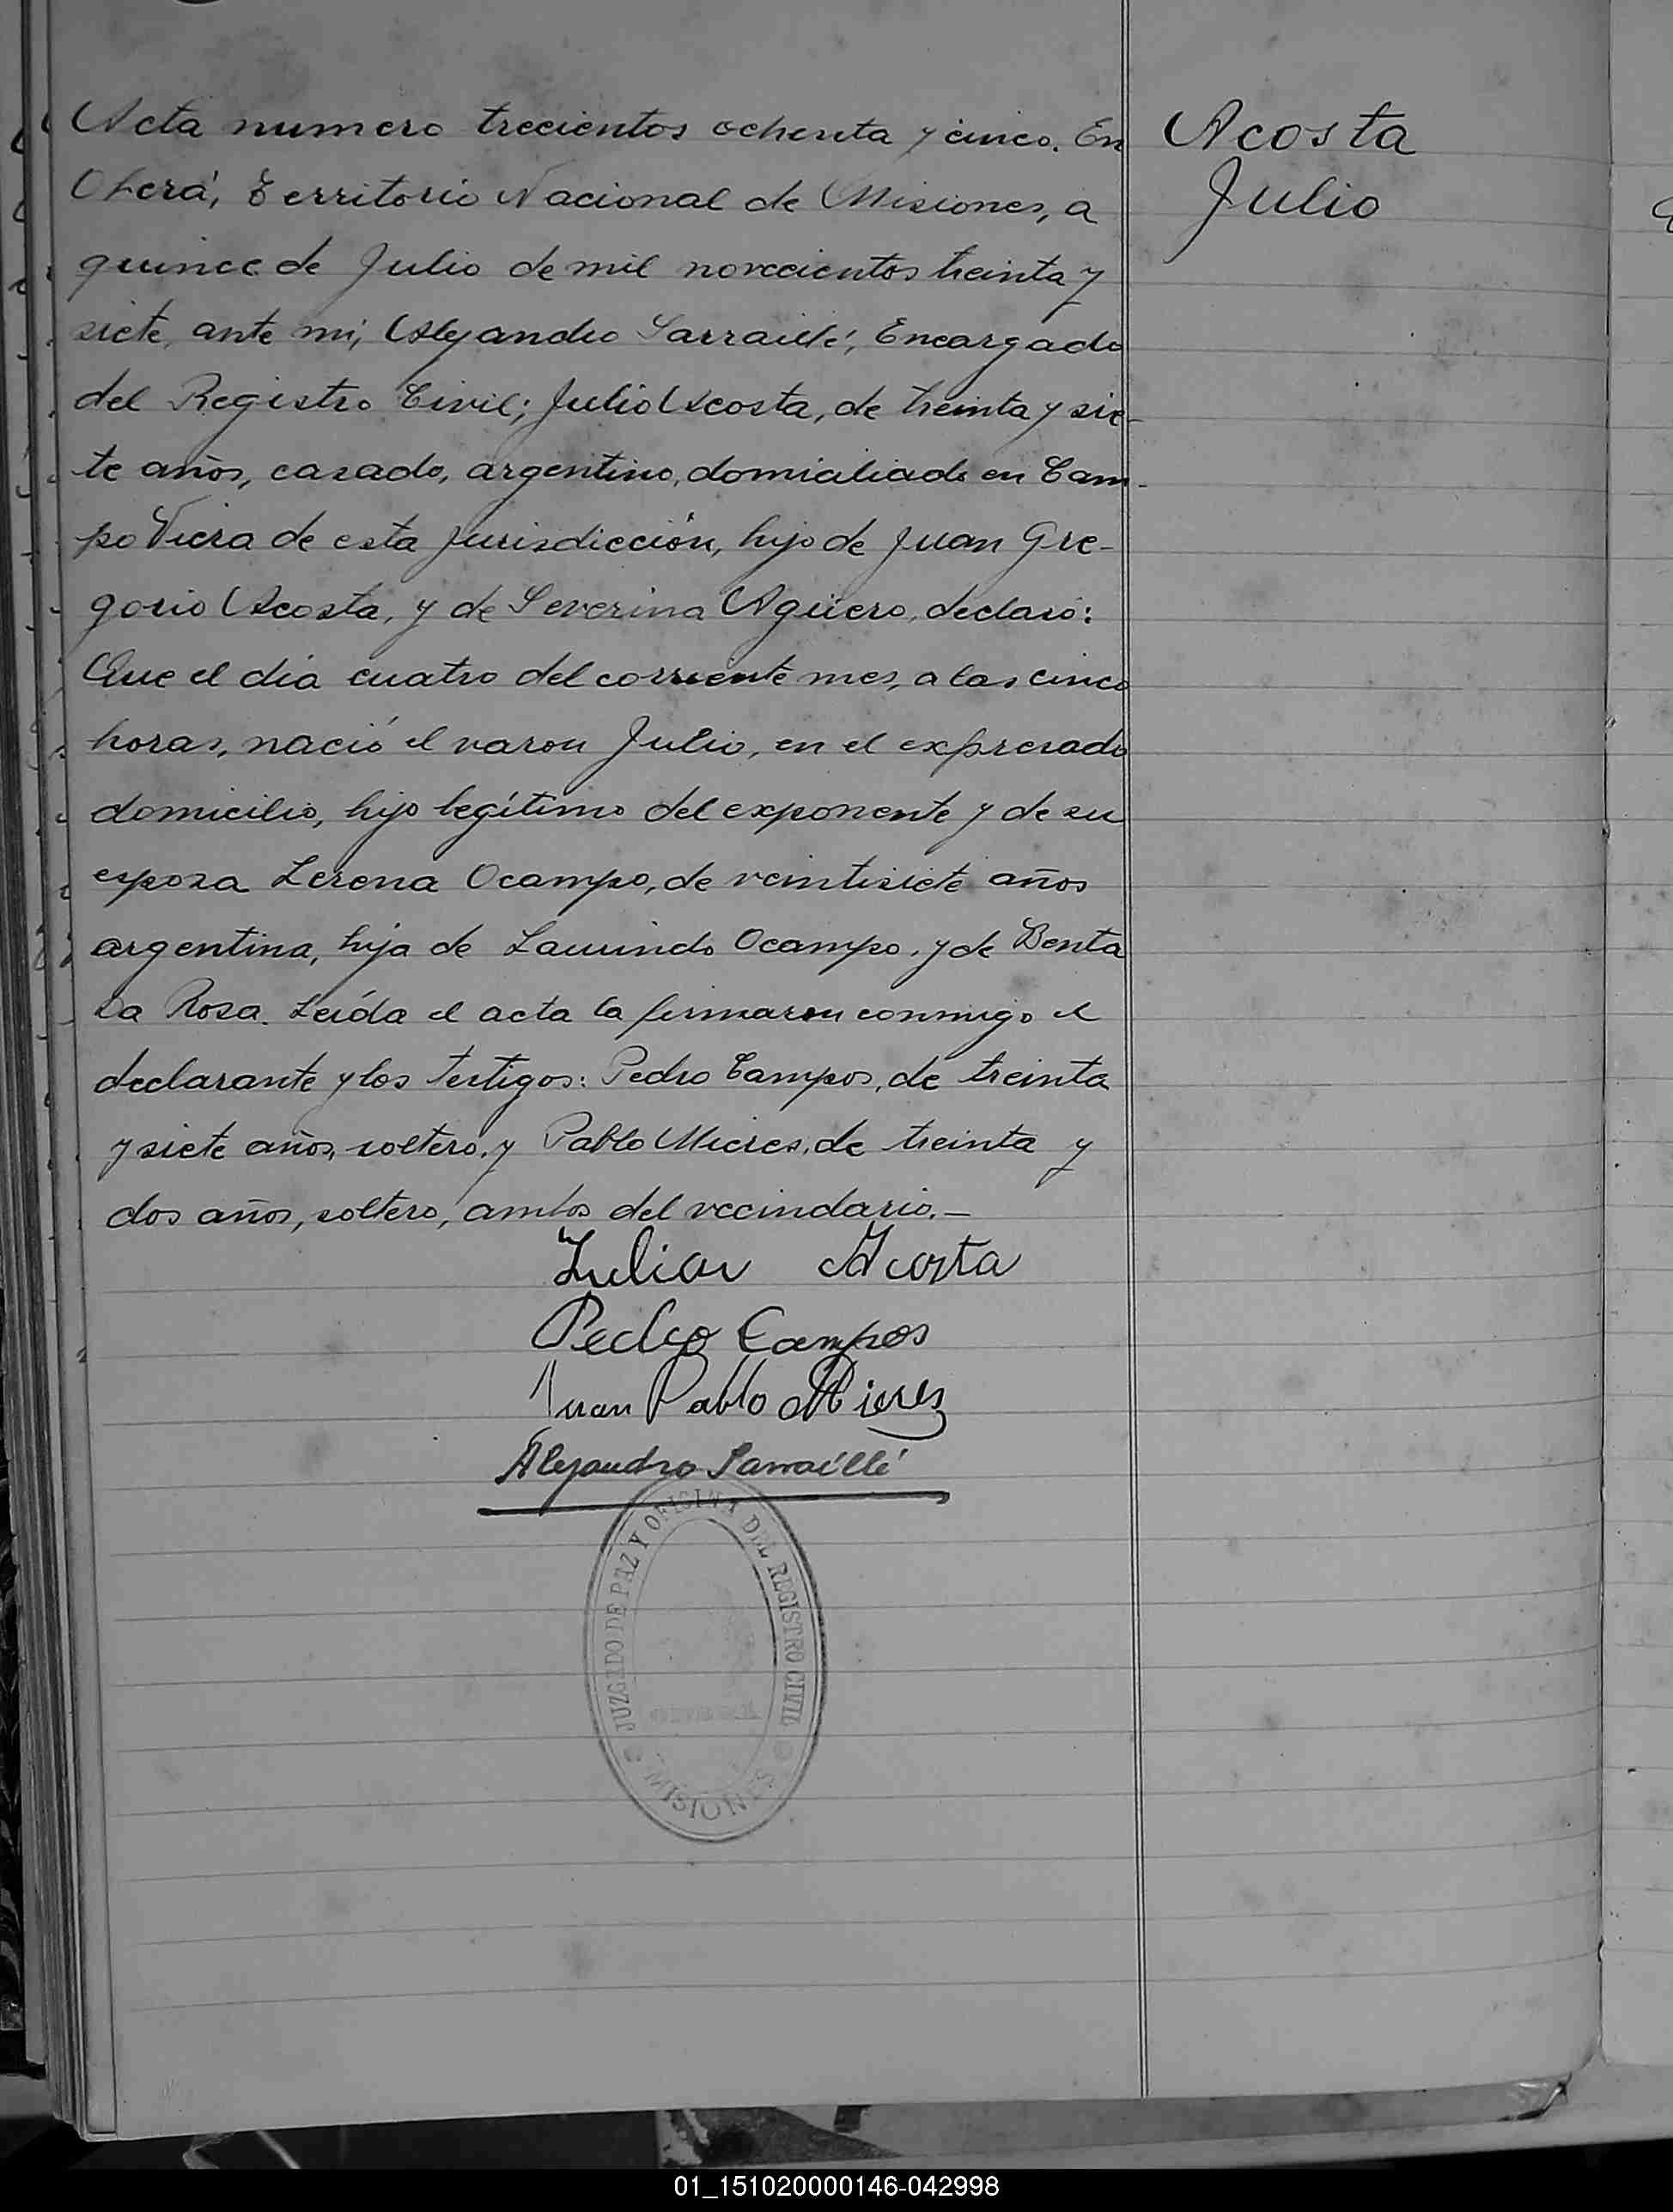 Acta numero trecientos ochenta y cinco. En
Oberá, Territorio Nacional de Misiones, a
quince de Julio de mil novecientos treinta y
siete, ante mi, Alejandro Sarraillé, Encargado
del Registro Civil; Julio Acosta, de treinta y sie-
te años, casado, argentino, domiciliado en Cam-
po Viera de esta jurisdicción, hijo de Juan Gre-
gorio Acosta, y de Severina Agüero, declaró:
Que el día cuatro del corriente mes, a las cinco
horas, nació el varon Julio, en el expresado
domicilio, hijo legítimo del exponente y de su
esposa Lerena Ocampo, de veintisiete años
argentina, hija de Laurindo Ocampo, y de Benta
da Rosa. Leída el acta la firmaron conmigo el
declarante y los testigos: Pedro Campos, de treinta
y siete años, soltero, y Pablo Mieres, de treinta y
dos años, soltero, ambos del vecindario.—
Acosta
Julio
Julian Acosta
Pedro Campos
Juan Pablo Mieres
Alejandro Sarraillé
JUZGADO DE PAZ Y OFICINA DEL REGISTRO CIVIL
MISIONES
01_151020000146-042998